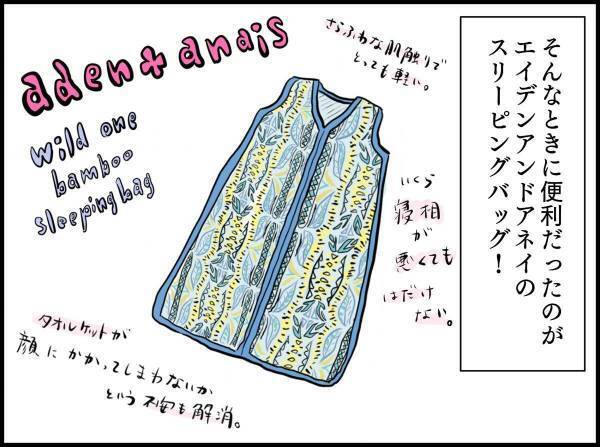 そんなときに便利だったのが
エイデンアンドアネイの
スリーピングバッグ！
aden + anais
wild one
bamboo
sleeping bag
さらふわな肌触りで
とっても軽い。
いくら
寝相
が
悪くても
はだけ
ない。
タオルケットが
顔にかかってしまわないか
という不安も解消。